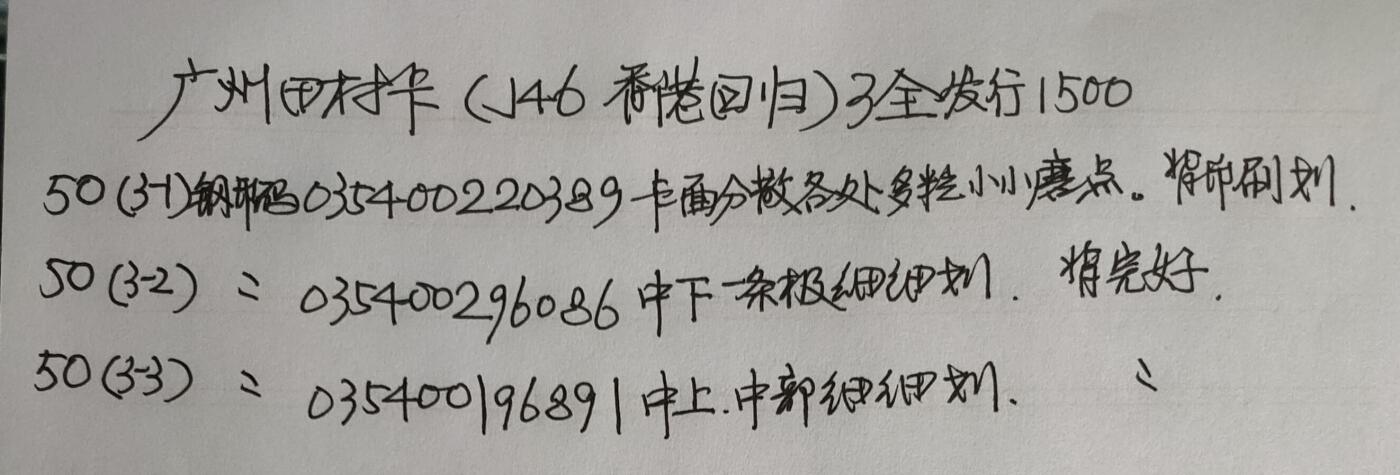 广州田村卡（J46 香港回归）3全发行1500
50（3-1）钢印码035400220389卡面分散各处多粒小小磨点。背印刷划.
50（3-2） 〃 035400296086中下一条极细细划. 背完好.
50（3-3） 〃 035400196891中上.中部细细划. 〃